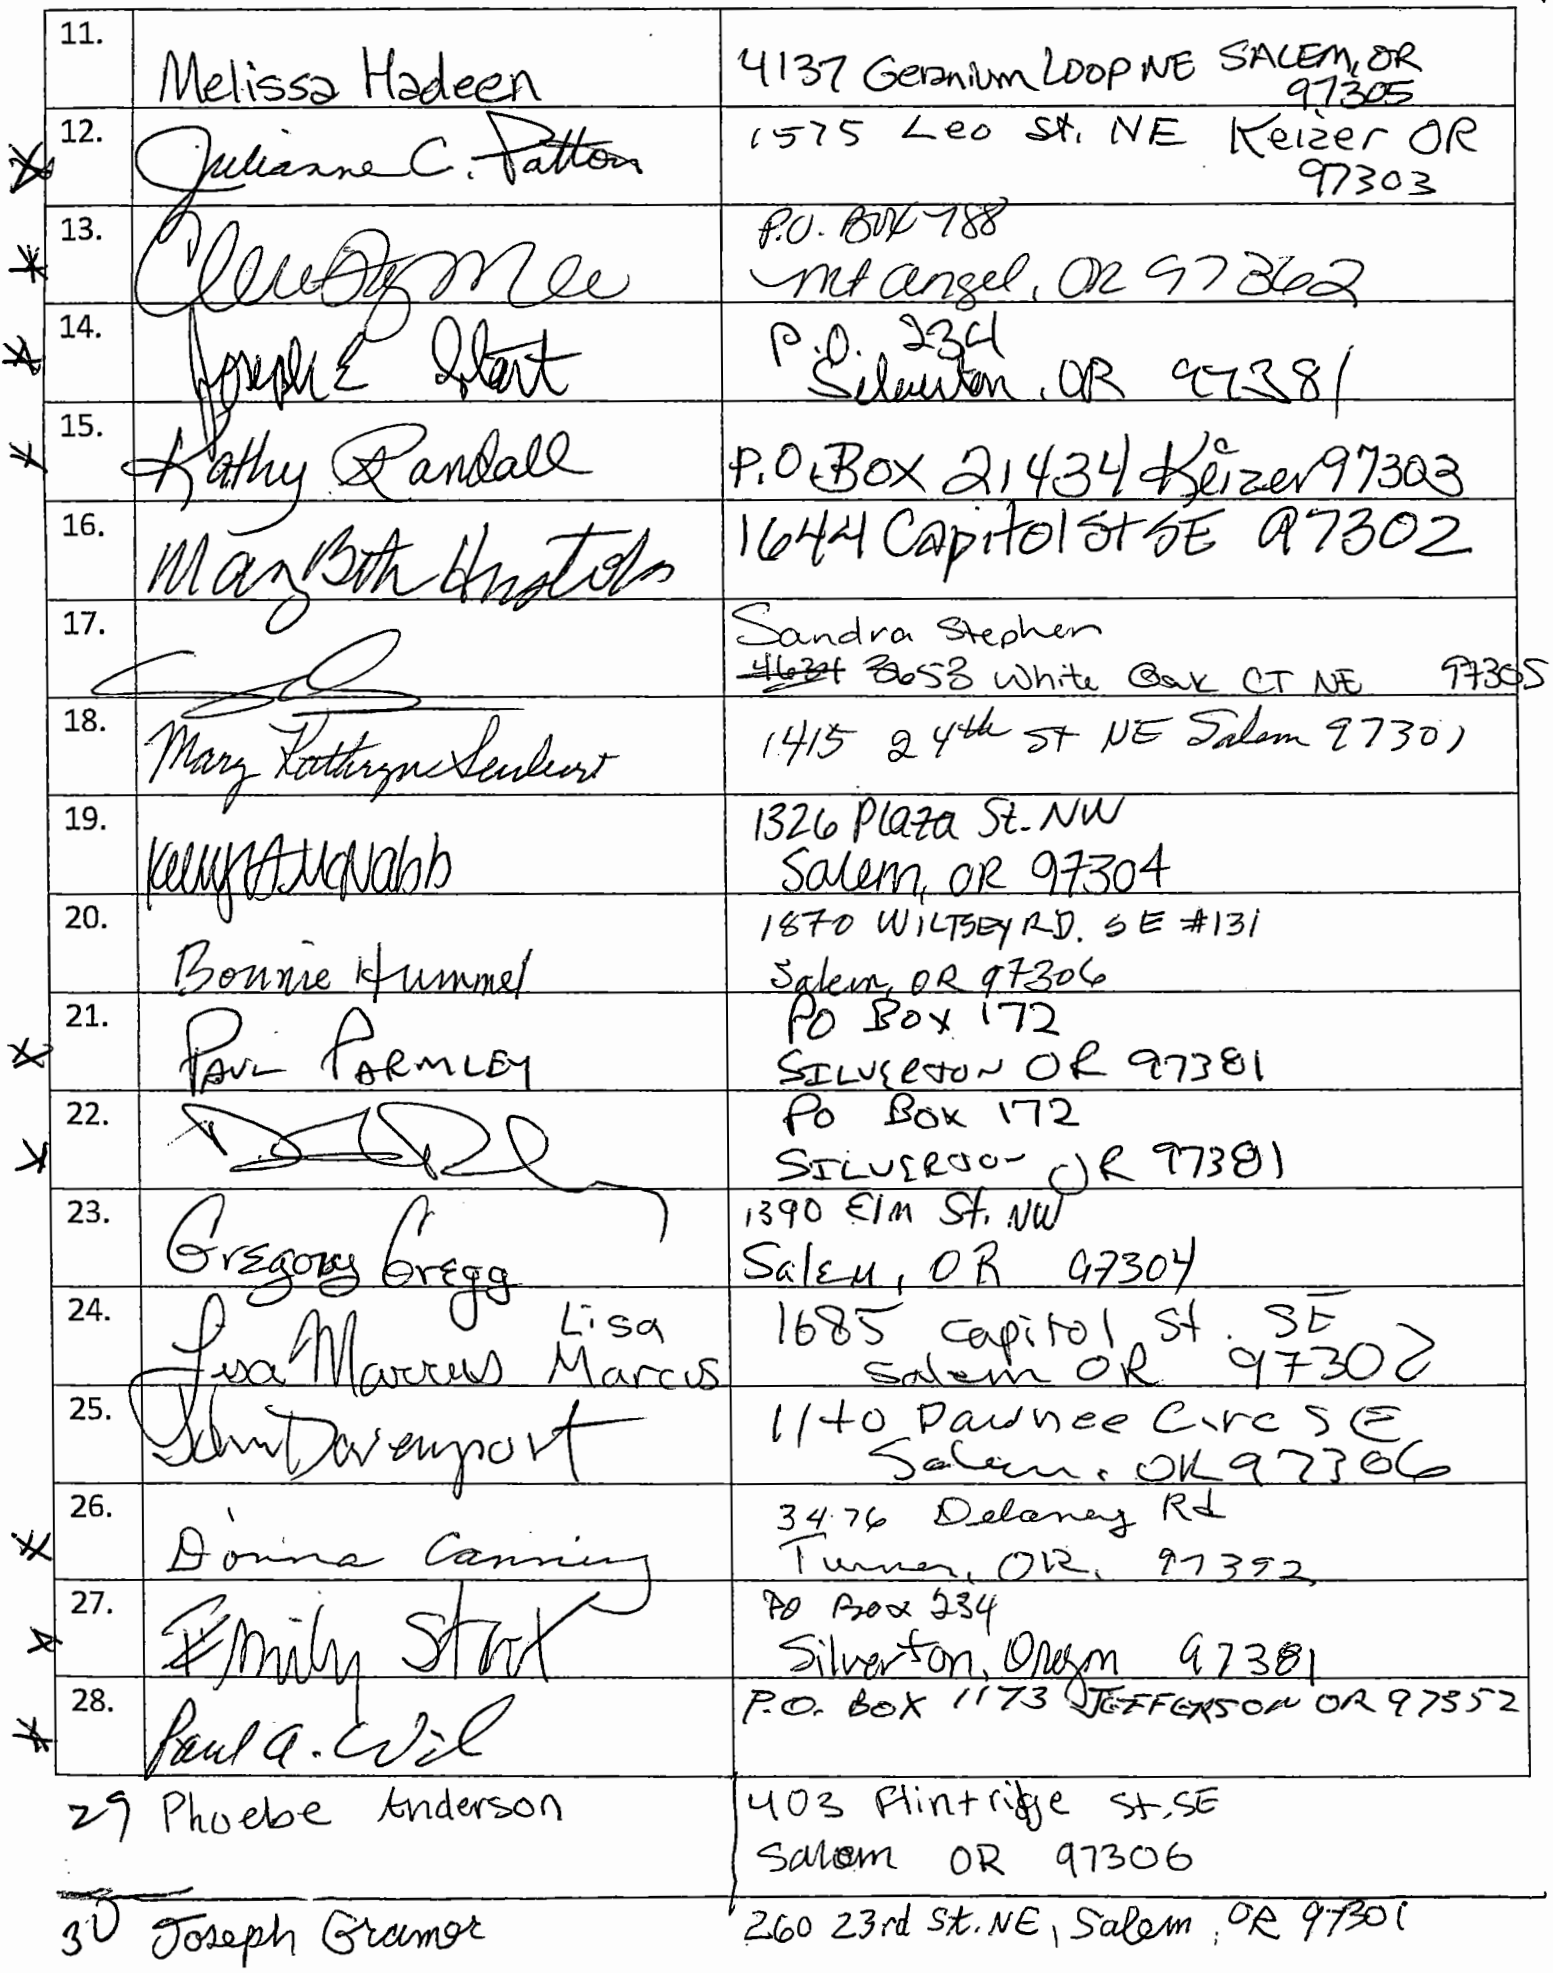 11.
Melissa Hadeen
4137 Geranium LOOP NE SALEM, OR
97305
12.
Julianne C. Patton
1575 Leo St. NE Keizer OR
97303
13.
P.O. BOX 788
Mt Angel, OR 97362
14.
Joseph E Start
P.O. 234
Silverton, OR 97381
15.
Kathy Randall
P.O. Box 21434 Keizer 97303
16.
Mary Beth
1644 Capitol St SE 97302
17.
Sandra Stephen
3653 White Oak CT NE 97305
18.
Mary Kathryn
1415 24th St NE Salem 97301
19.
Kelly A. McNabb
1326 Plaza St. NW
Salem, OR 97304
20.
Bonnie Hummel
1870 WILTSEY RD. SE #131
Salem, OR 97306
21.
PAUL PARMLEY
PO Box 172
SILVERTON OR 97381
22.
PO Box 172
SILVERTON OR 97381
23.
Gregory Gregg
1390 Elm St. NW
Salem, OR 97304
24.
Lisa Marcus
Lisa
Marcus
1685 Capitol St. SE
Salem OR 97302
25.
John Davenport
1140 Pawnee Circ SE
Salem, OR 97306
26.
Donna Canning
3476 Delaney Rd
Turner, OR. 97392
27.
Emily Start
PO Box 234
Silverton, Oregon 97381
28.
Paul A. Wil
P.O. BOX 1173 JEFFERSON OR 97352
29 Phoebe Anderson
403 Flintridge St. SE
Salem OR 97306
30 Joseph Gramer
260 23rd St. NE, Salem, OR 97301